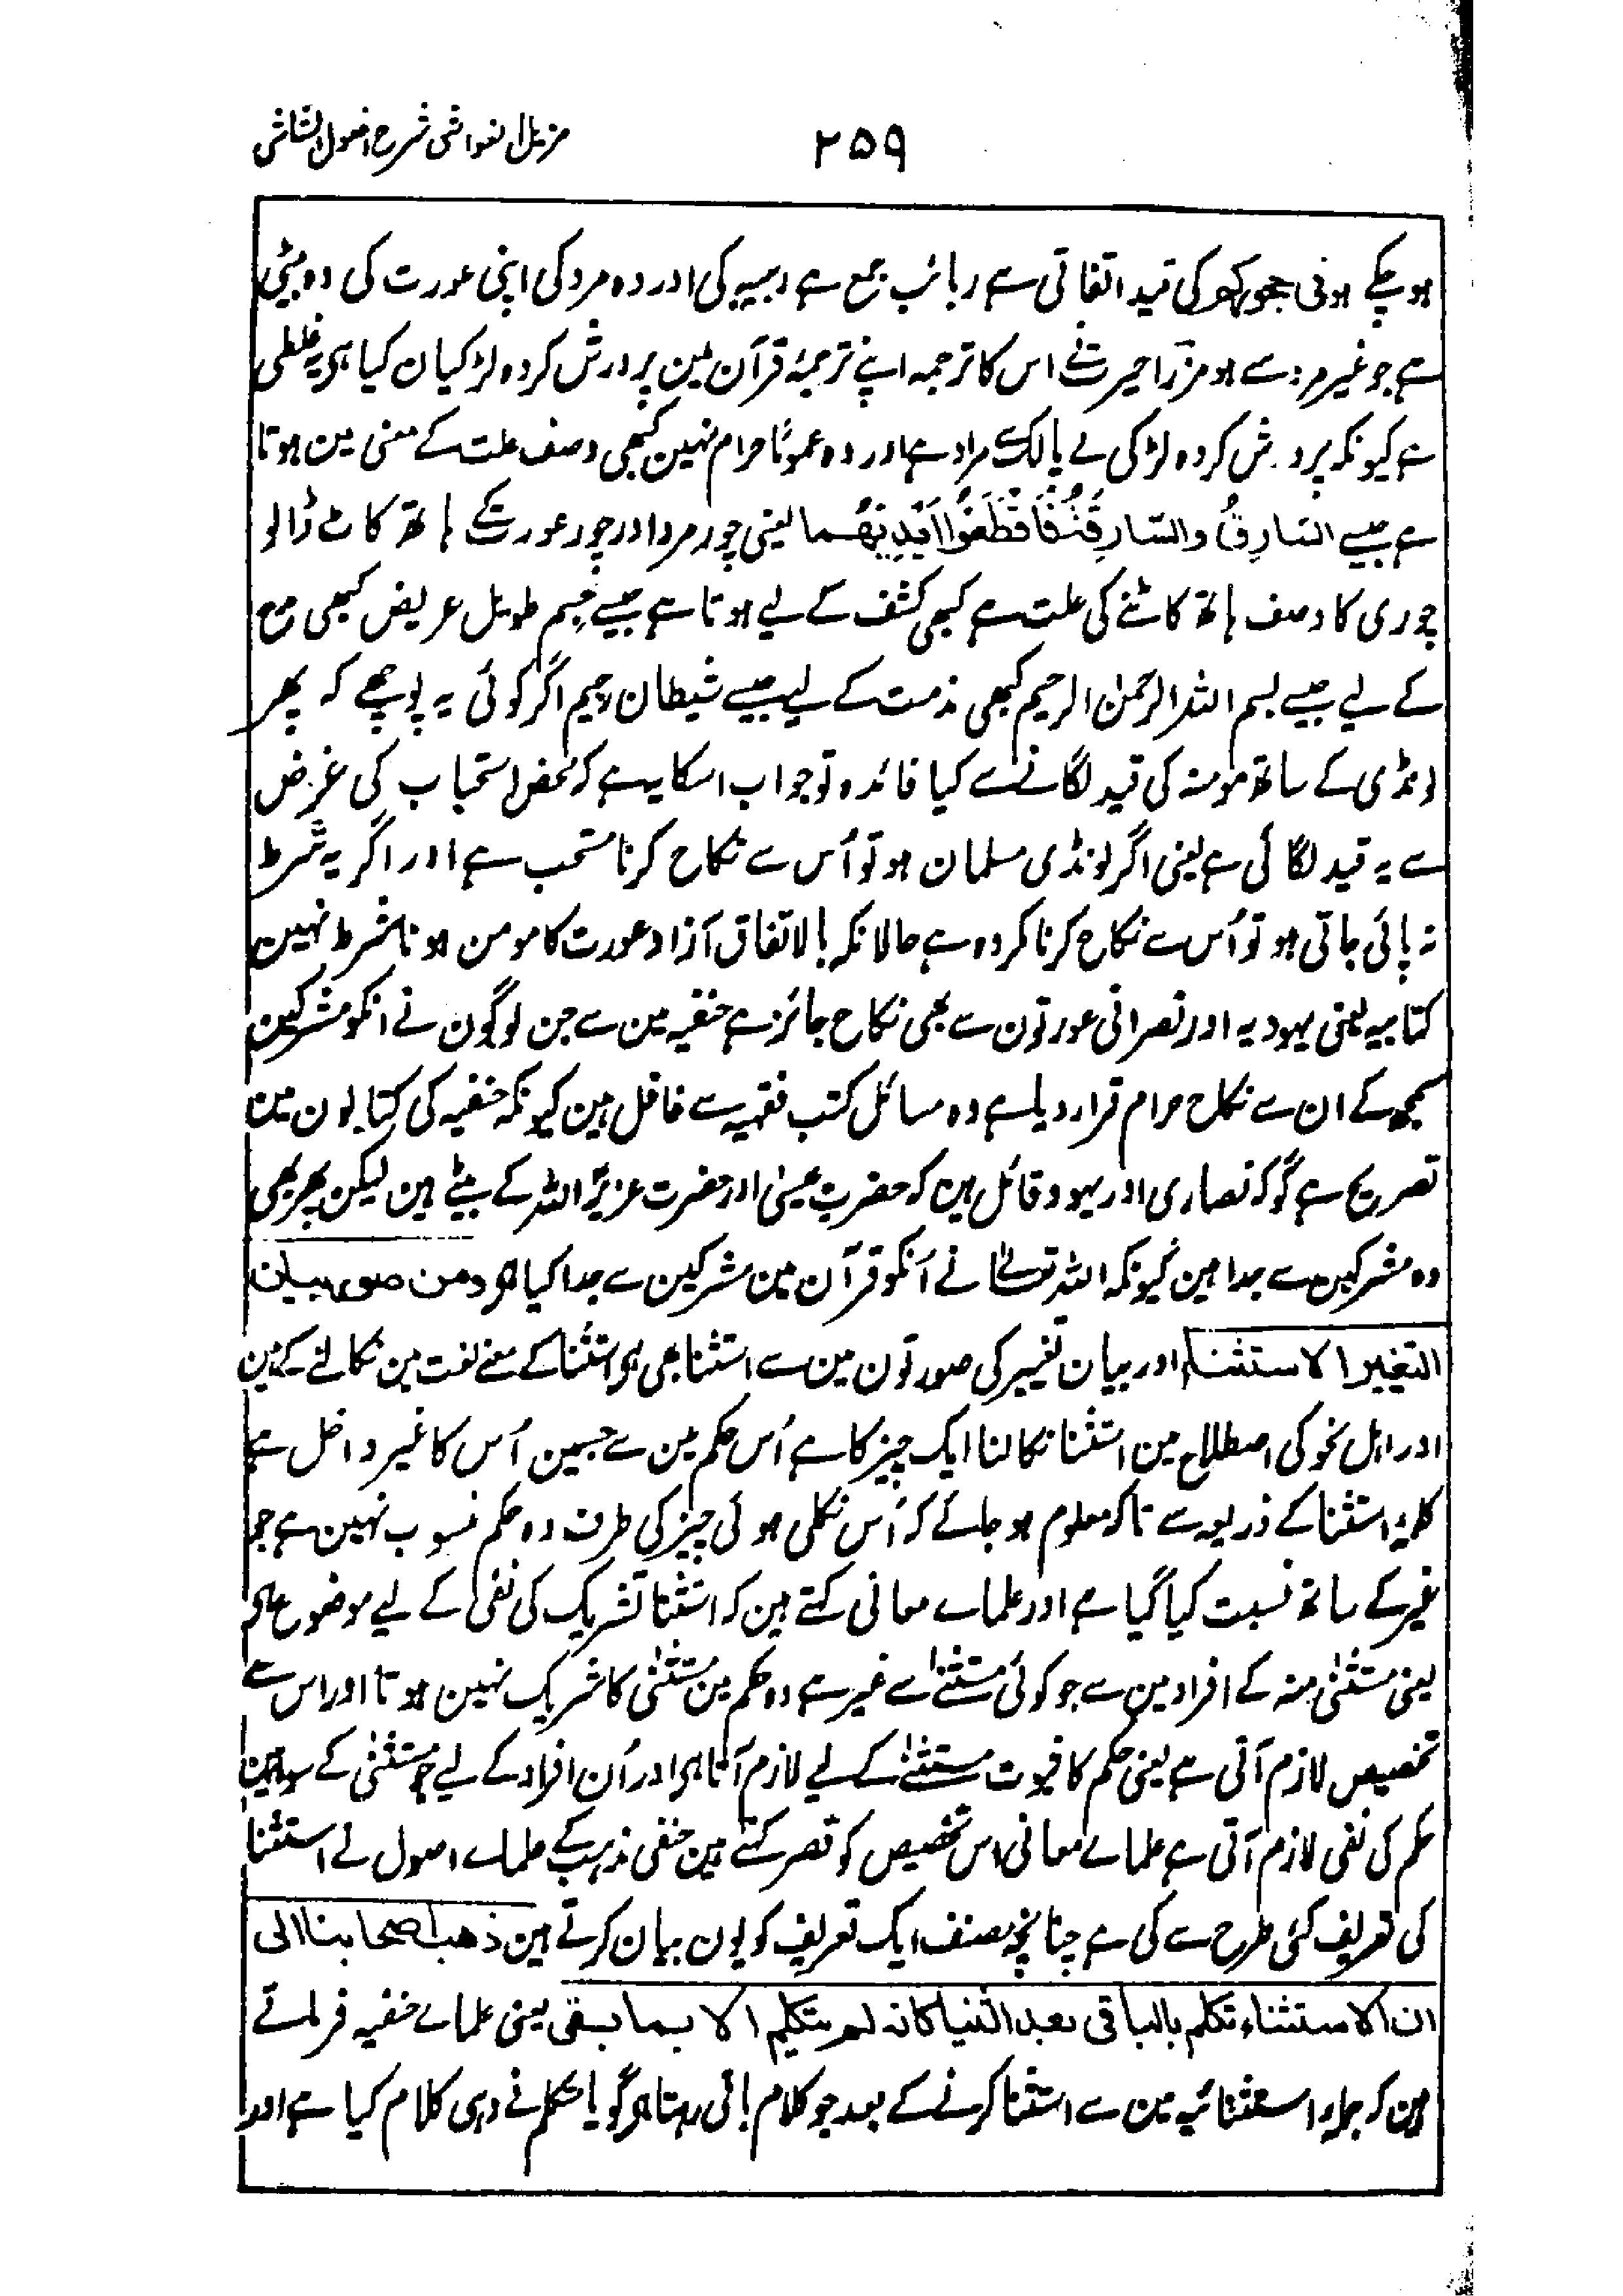 ۲۵۹
مزیل الغواشی شرح اصول الشاشی
ہو چکے ہو فی حجورکم کی قید اتفاقی ہے ربائب جمع ہے ربیبہ کی اور وہ مرد کی اپنی عورت کی وہ بیٹی
ہے جو غیر مرد سے ہو مرزا حیرت نے اس کا ترجمہ اپنے ترجمۂ قرآن مین پرورش کردہ لڑکیان کیا ہی یہ غلطی
ہے کیونکہ پرورش کردہ لڑکی لے پالک مراد ہے اور وہ عموماً حرام نہین کبھی وصف علت کے معنی مین ہوتا
ہے جیسے السَارِقُ والسّارِقَۃُ فَاقْطَعُوْا اَیْدِیَھُما یعنی چور مرد اور چور عورت کے ہاتھ کاٹ ڈالو
چوری کا وصف ہاتھ کاٹنے کی علت ہے کبھی کشف کے لیے ہوتا ہے جیسے جسم طویل عریض کبھی مدح
کے لیے جیسے بسم اللہ الرحمٰن الرحیم کبھی مذمت کے لیے جیسے شیطان رجیم اگر کوئی یہ پوچھے کہ پھر
لونڈی کے ساتھ مومنہ کی قید لگانے سے کیا فائدہ تو جواب اسکا یہ ہے کہ محض استحباب کی غرض
سے یہ قید لگائی ہے یعنی اگر لونڈی مسلمان ہو تو اُس سے نکاح کرنا مستحب ہے اور اگر یہ شرط
نہ پائی جاتی ہو تو اُس سے نکاح کرنا مکروہ ہے حالانکہ بالاتفاق آزاد عورت کا مومن ہونا شرط نہین
کتابیہ یعنی یہودیہ اور نصرانی عورتون سے بھی نکاح جائز ہے حنفیہ مین سے جن لوگون نے انکو مشرکین
سمجھ کے ان سے نکاح حرام قرار دیا ہے وہ مسائل کتب فقہیہ سے غافل ہین کیونکہ حنفیہ کی کتابون مین
تصریح ہے گو کہ نصاری اور یہود قائل ہین کہ حضرت عیسیٰ اور حضرت عزیرؑ اللہ کے بیٹے ہین لیکن پھر بھی
وہ مشرکین سے جدا ہین کیونکہ اللہ تعالےٰ نے اُنکو قرآن مین مشرکین سے جدا کیا ہی ومن صور بیان
التغییر الاستثناء اور بیان تغییر کی صورتون مین سے استثنا بھی ہی استثنا کے معنے لغت مین نکالنے کے ہین
اور اہل نحو کی اصطلاح مین استثنا نکالنا ایک چیز کا ہے اُس حکم مین سے جسمین اُس کا غیر داخل ہے
کلمۂ استثنا کے ذریعہ سے تاکہ معلوم ہو جائے کہ اُس نکلی ہوئی چیز کی طرف وہ حکم منسوب نہین ہے جو
غیر کے ساتھ نسبت کیا گیا ہے اور علماے معانی کہتے ہین کہ استثنا تشریک کی نفی کے لیے موضوع ہی
یعنی مستثنیٰ منہ کے افراد مین سے جو کوئی مستثنےٰ سے غیر ہے وہ حکم مین مستثنٰی کا شریک نہین ہوتا اور اس سے
تخصیص لازم آتی ہے یعنی حکم کا ثبوت مستثنےٰ کے لیے لازم آتا ہی اور اُن افراد کے لیے جو مستثنٰی کے سوا ہین
حکم کی نفی لازم آتی ہے علماے معانی اس تخصیص کو قصر کہتے ہین حنفی مذہب کے علماے اصول نے استثنا
کی تعریف کئی طرح سے کی ہے چنانچہ مصنف ایک تعریف کو یون بیان کرتے ہین ذھب اصحابنا الی
ان الاستثناء تکلم بالباقی بعد الثنیا کانہ لم یتکلم الا بما بقی یعنی علماے حنفیہ فرماتے
ہین کہ جملۂ استثنائیہ مین سے استثنا کرنے کے بعد جو کلام باقی رہتا ہی گویا متکلم نے وہی کلام کیا ہے اور